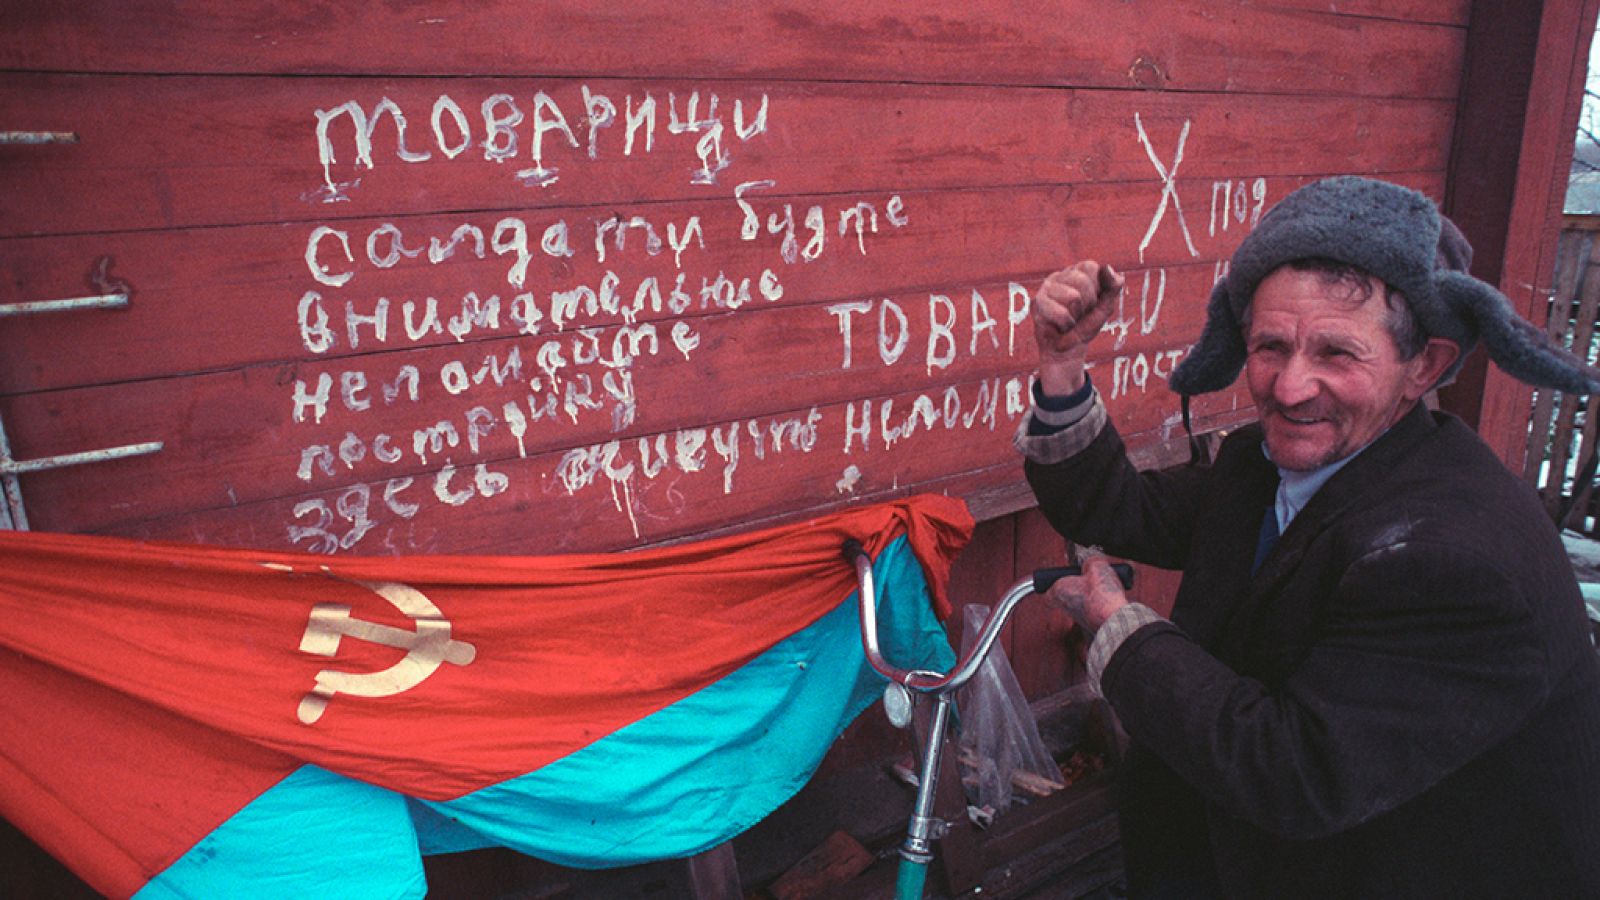 ТОВАРИЩИ
Солдаты будте
внимательние
неломайте
постройку
здесь живуть
Х под
ТОВАР ЩИ
неломай